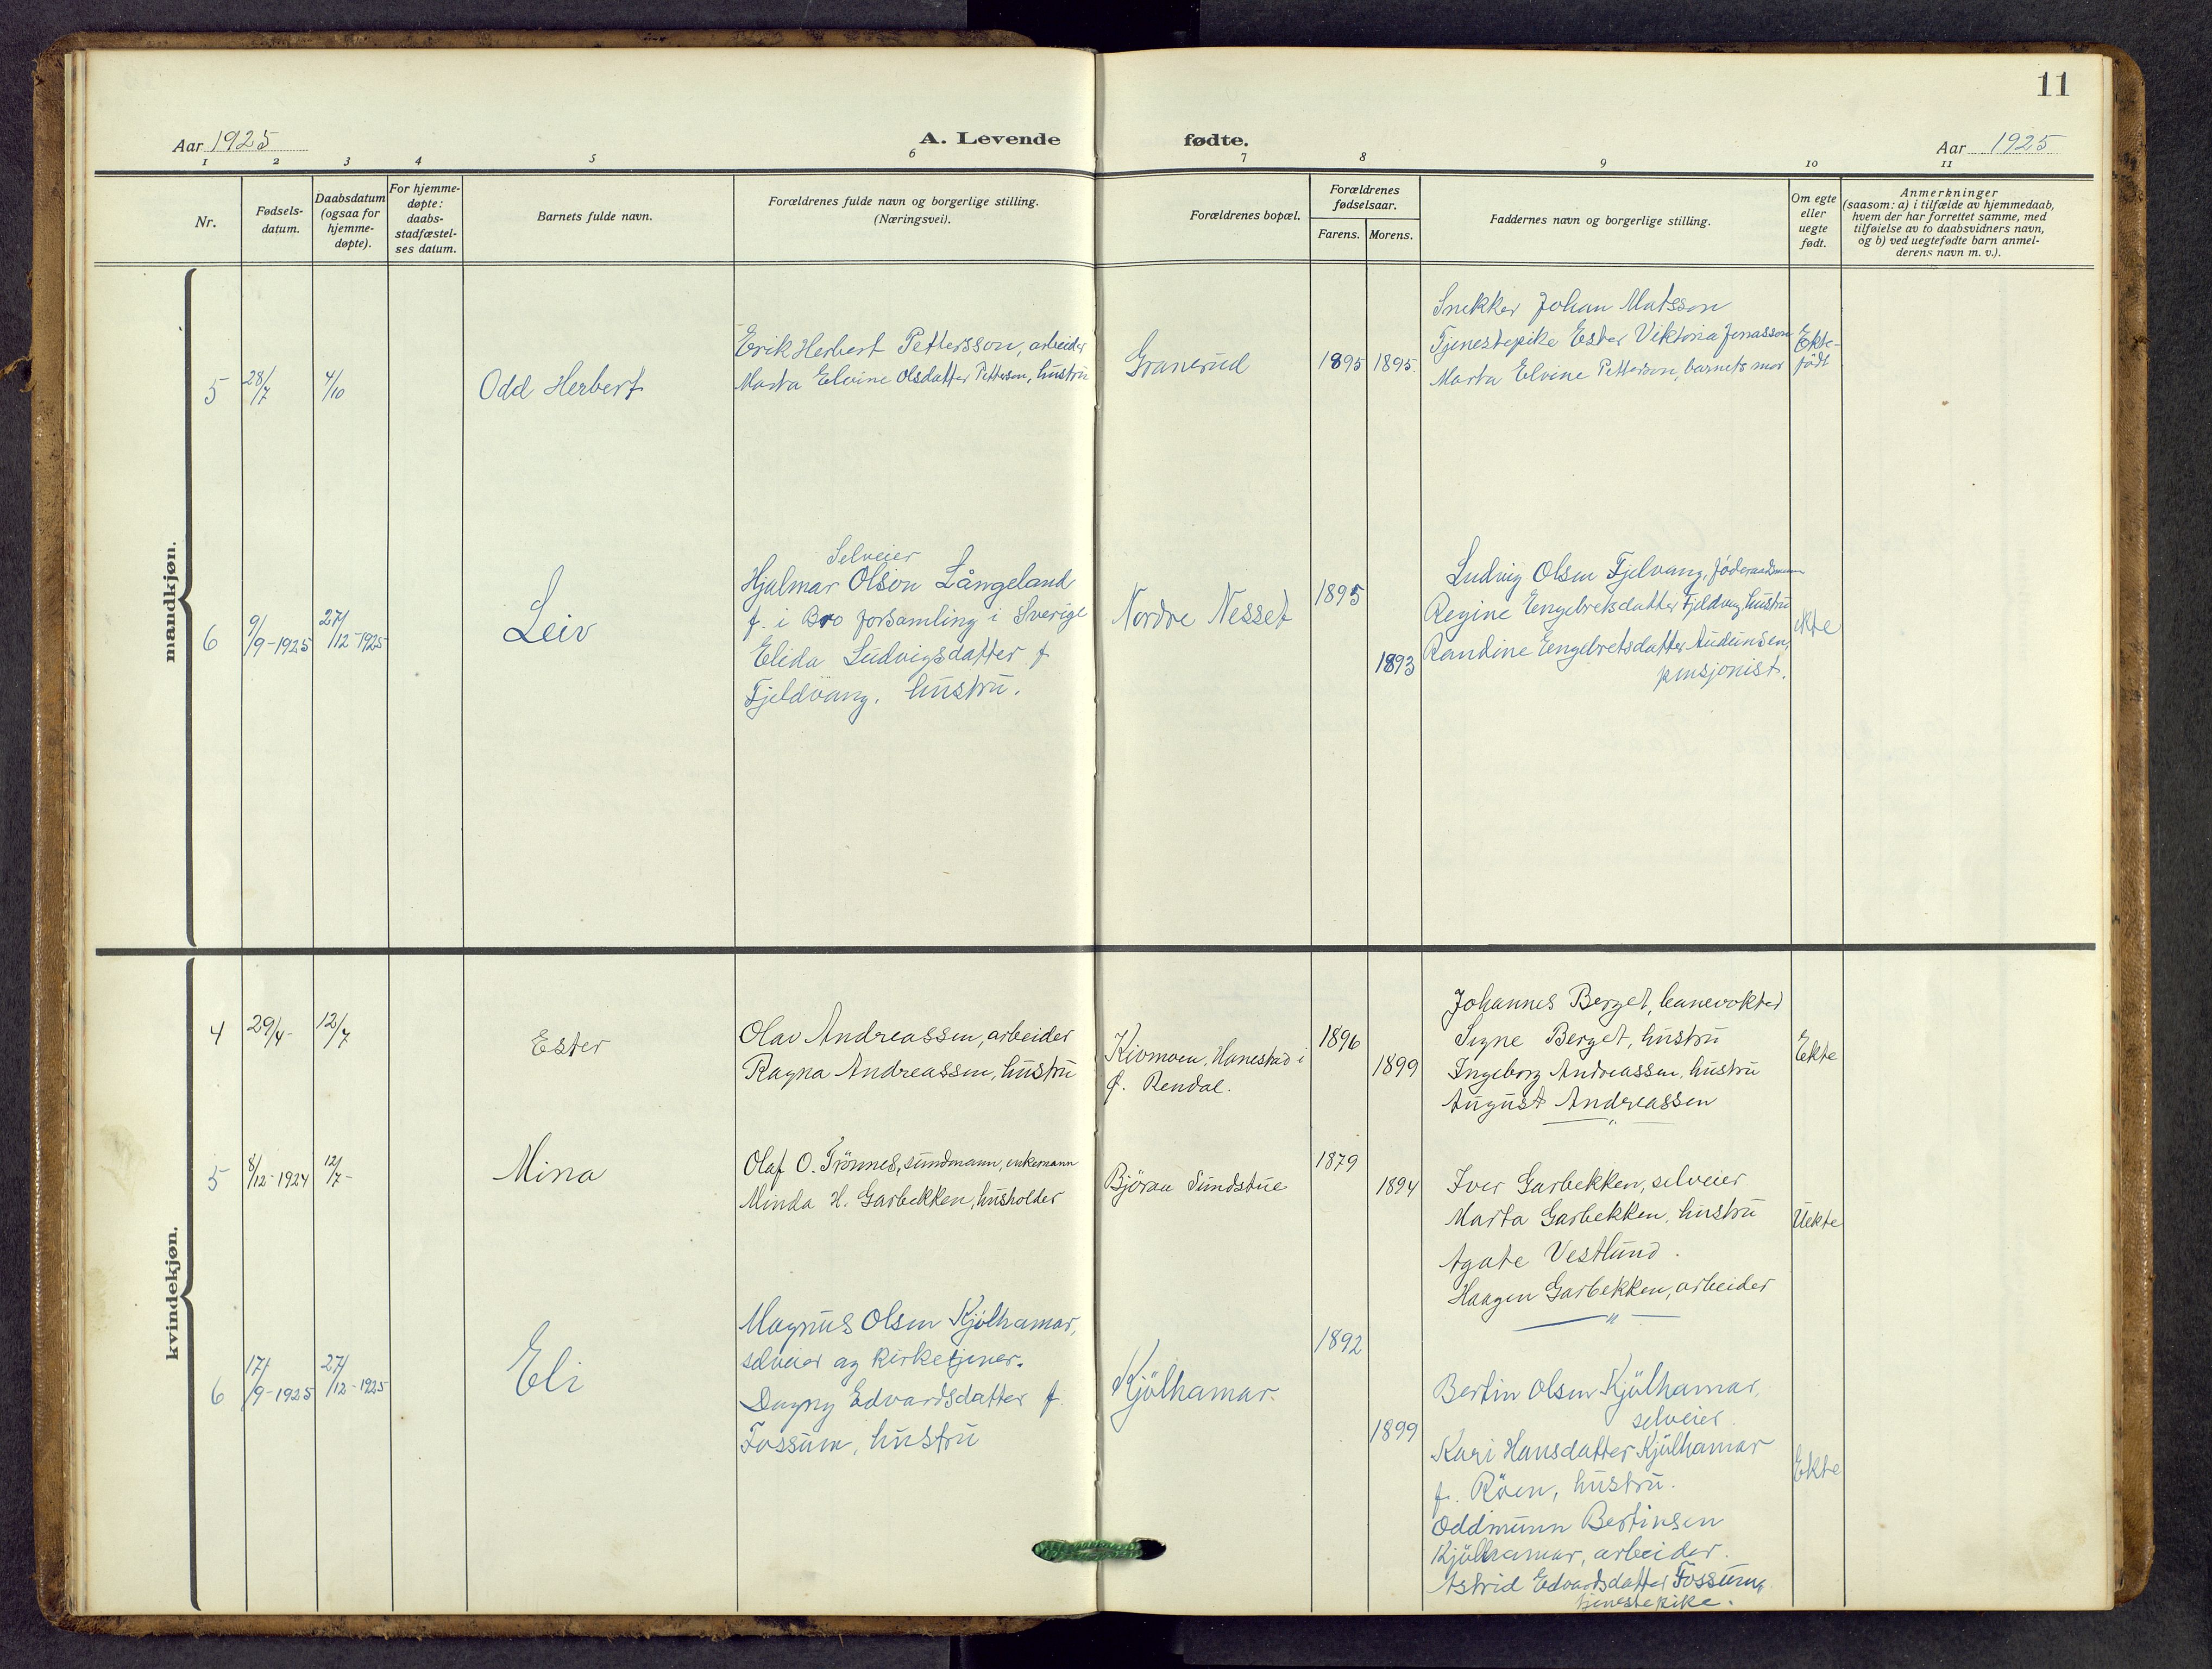 11
Aar 1925
A. Levende fødte.
Aar 1925
1 2 3 4 5 6 7 8 9 10 11
Nr.
Fødsels-
datum.
Daabsdatum
(ogsaa for
hjemme-
døpte).
For hjemme-
døpte:
daabs-
stadfæstel-
ses datum.
Barnets fulde navn.
Forældrenes fulde navn og borgerlige stilling.
(Næringsvei).
Forældrenes bopæl.
Forældrenes
fødselsaar.
Farens. Morens.
Faddernes navn og borgerlige stilling.
Om egte
eller
uegte
født.
Anmerkninger
(saasom: a) i tilfælde av hjemmedaab,
hvem der har forrettet samme, med
tilføielse av to daabsvidners navn,
og b) ved uegtefødte barn anmel-
derens navn m. v.).
mandkjøn.
5
28/7
4/10
Odd Herbert
Erik Herbert Pettersson, arbeider
Marta Elvine Olsdatter Petterson, hustru
Granerud
1895 1895.
Snekker Johan Matsson
Tjenestepike Ester Viktoria Jonasson
Marta Elvine Petterson, barnets mor
Ekte-
född
6
9/9-1925
27/12-1925
Leiv
Selveier
Hjalmar Olson Långeland
f. i Bro forsamling i Sverige
Elida Ludvigsdatter f
Fjeldvang, hustru.
Nordre Nesset
1895
1893
Ludvig Olsen Fjelvang, föderaadsmann
Regine Engebretsdatter Fjeldvang, hustru
Randine Engebretsdatter Audunsen,
pensjonist.
ekte
kvindekjøn.
4
29/4-
12/7
Ester
Olav Andreassen, arbeider
Ragna Andreassen, hustru
Kivmoen, Hanestad i
Ø. Rendal.
1896
1899
Johannes Berget, banevokter
Signe Berget, hustru
Ingeborg Andreassen, hustru
August Andreassen
— " —
Ekte
5
8/12-1924
12/7-
Mina
Olaf O. Trönnes, sundmann, enkemann
Minda H. Garbekken, husholder
Björaa Sundstue
1879
1894
Iver Garbekken, selveier
Marta Garbekken, hustru
Agate Vestlund.
Haagen Garbekken, arbeider
— " —
Uekte
6
17/9-1925
27/12-1925
Eli
Magnus Olsen Kjölhamar,
selveier og kirketjener.
Dagny Edvardsdatter f.
Fossum, hustru
Kjölhamar.
1892
1899
Bertin Olsen Kjölhamar,
selveier.
Kari Hansdatter Kjölhamar
f. Röen, hustru.
Oddmunn Bertinsen
Kjölhamar, arbeider.
Astrid Edvardsdatter Fossum,
tjenestepike.
Ekte